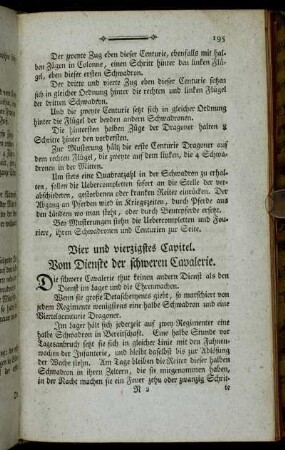 195
Der zweyte Zug eben dieser Centurie, ebenfalls mit hal-
ben Zügen in Colonne, einen Schritt hinter den linken Flü-
gel, eben dieser ersten Schwadron.
Der dritte und vierte Zug eben dieser Centurie setzen
sich in gleicher Ordnung hinter die rechten und linken Flügel
der dritten Schwadron.
Und die zweyte Centurie setzt sich in gleicher Ordnung
hinter die Flügel der beyden andern Schwadronen.
Die hintersten halben Züge der Dragoner halten 8
Schritte hinter den vordersten.
Zur Musterung hält die erste Centurie Dragoner auf
dem rechten Flügel, die zweyte auf dem linken, die 4 Schwa-
dronen in der Mitten.
Um stets eine Quadratzahl in der Schwadron zu erhal-
ten, sollen die Uebercompletten sofort an die Stelle der ver-
abschiedeten, gestorbenen oder kranken Reiter einrücken. Der
Abgang an Pferden wird in Kriegszeiten, durch Pferde aus
den Ländern wo man steht, oder durch Beutepferde ersetzt.
Bey Musterungen stehn die Uebercompletten und Fou-
riere, ihren Schwadronen und Centurien zur Seite.
Vier und vierzigstes Capitel.
Vom Dienste der schweren Cavalerie.
Die schwere Cavalerie thut keinen andern Dienst als den
Dienst im Lager und die Ehrenwachen.
Wenn sie große Detaschemens giebt, so marschiert von
jedem Regimente wenigstens eine halbe Schwadron und eine
Viertelscenturie Dragoner.
Im Lager hält sich jederzeit auf zwey Regimenter eine
halbe Schwadron in Bereitschaft. Eine halbe Stunde vor
Tagesanbruch setzt sie sich in gleicher Linie mit den Fahnen-
wachen der Infanterie, und bleibt daselbst bis zur Ablösung
der Wache stehn. Am Tage bleiben die Reiter dieser halben
Schwadron in ihren Zeltern, die sie mitgenommen haben,
in der Nacht machen sie ein Feuer zehn oder zwanzig Schrit-
N 2
te